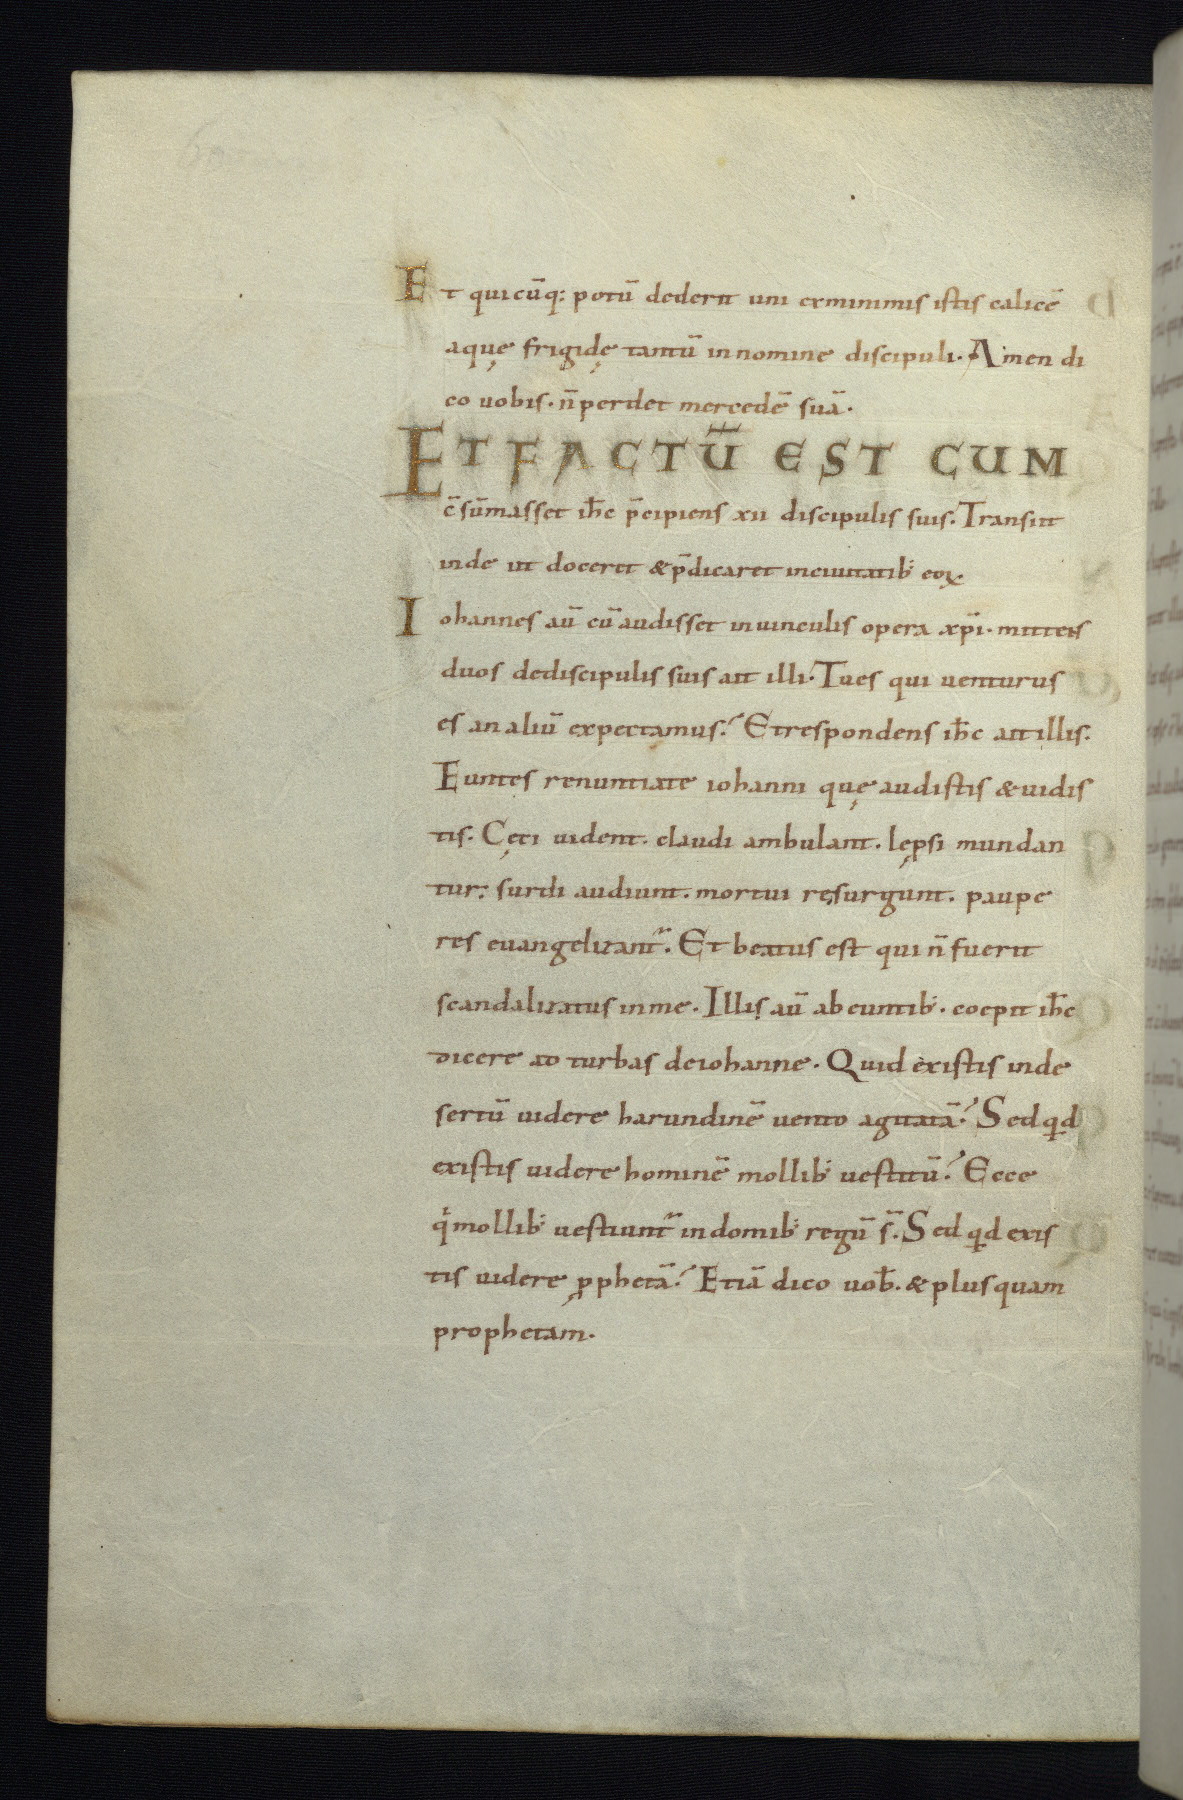 Et quicūq; potū dederit uni ex minimis istis calicē
aquę frigidę tantū in nomine discipuli. Amen di
co uobis. n̄ perdet mercedē suā.
ET FACTŪ EST CUM
c̄sūmasset ih̄c p̄cipiens xii discipulis suis. Transiit
inde ut doceret & p̄dicaret in ciuitatib; eoꝝ.
Iohannes aū cū audisset in uinculis opera xp̄i. mittens
duos de discipulis suis ait illi. Tu es qui uenturus
es an aliū expectamus? Et respondens ih̄c ait illis.
Euntes renuntiate iohanni quę audistis & uidis
tis. Cęci uident. claudi ambulant. lępsi mundan
tur; surdi audiunt. mortui resurgunt. paupe
res euangelizant᷑. Et beatus est qui n̄ fuerit
scandalizatus in me. Illis aū abeuntib;. coepit ih̄c
dicere ad turbas de iohanne. Quid existis in de
sertū uidere harundinē uento agitatā? Sed qid
existis uidere hominē mollib; uestitū? Ecce
qͥ mollib; uestiunt᷑ in domib; regū s̄. Sed qid exis
tis uidere ꝓphetā? Etiā dico uob̄. & plus quam
prophetam.